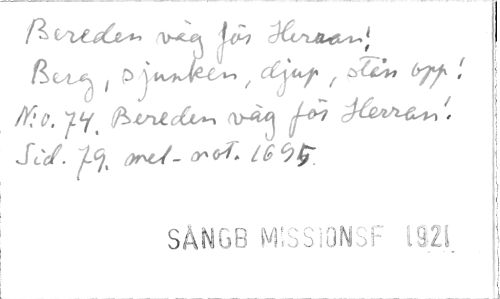 Bereden väg för Herran!
Berg, sjunken, djup, stån opp!
N:o. 74. Bereden väg för Herran!
Sid. 79. mel-not. 1695.
SÅNGB MISSIONSF 1921